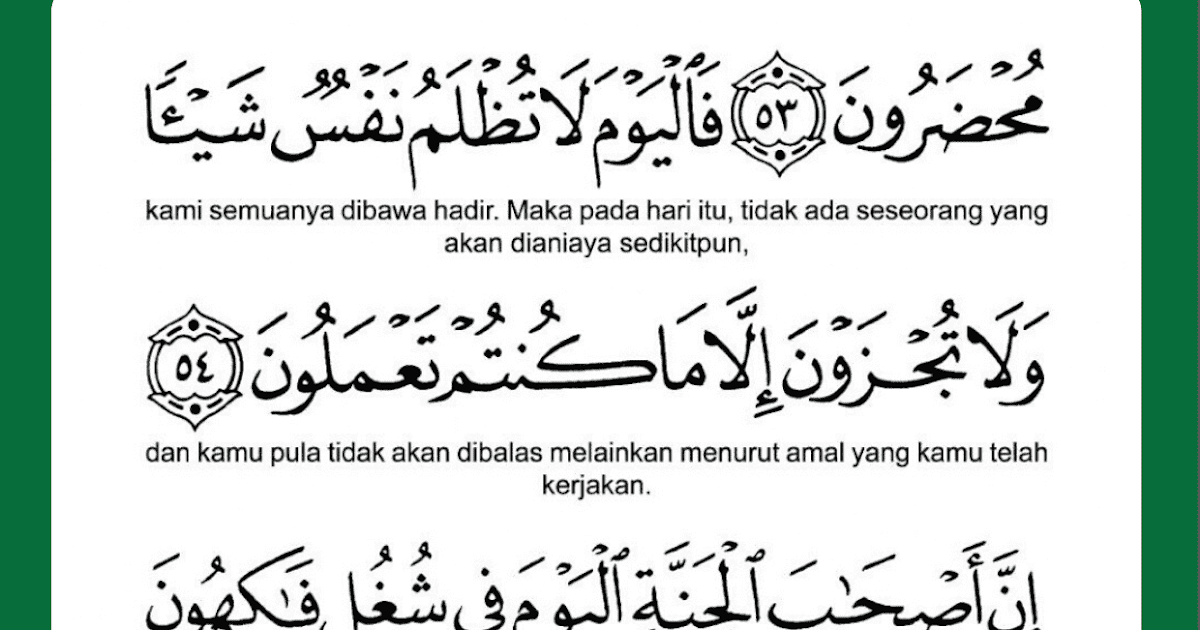 مُحْضَرُونَ ٥٣ فَٱلْيَوْمَ لَا تُظْلَمُ نَفْسٌ شَيْـًٔا
kami semuanya dibawa hadir. Maka pada hari itu, tidak ada seseorang yang
akan dianiaya sedikitpun,
وَلَا تُجْزَوْنَ إِلَّا مَا كُنتُمْ تَعْمَلُونَ ٥٤
dan kamu pula tidak akan dibalas melainkan menurut amal yang kamu telah
kerjakan.
إِنَّ أَصْحَـٰبَ ٱلْجَنَّةِ ٱلْيَوْمَ فِى شُغُلٍ فَـٰكِهُونَ